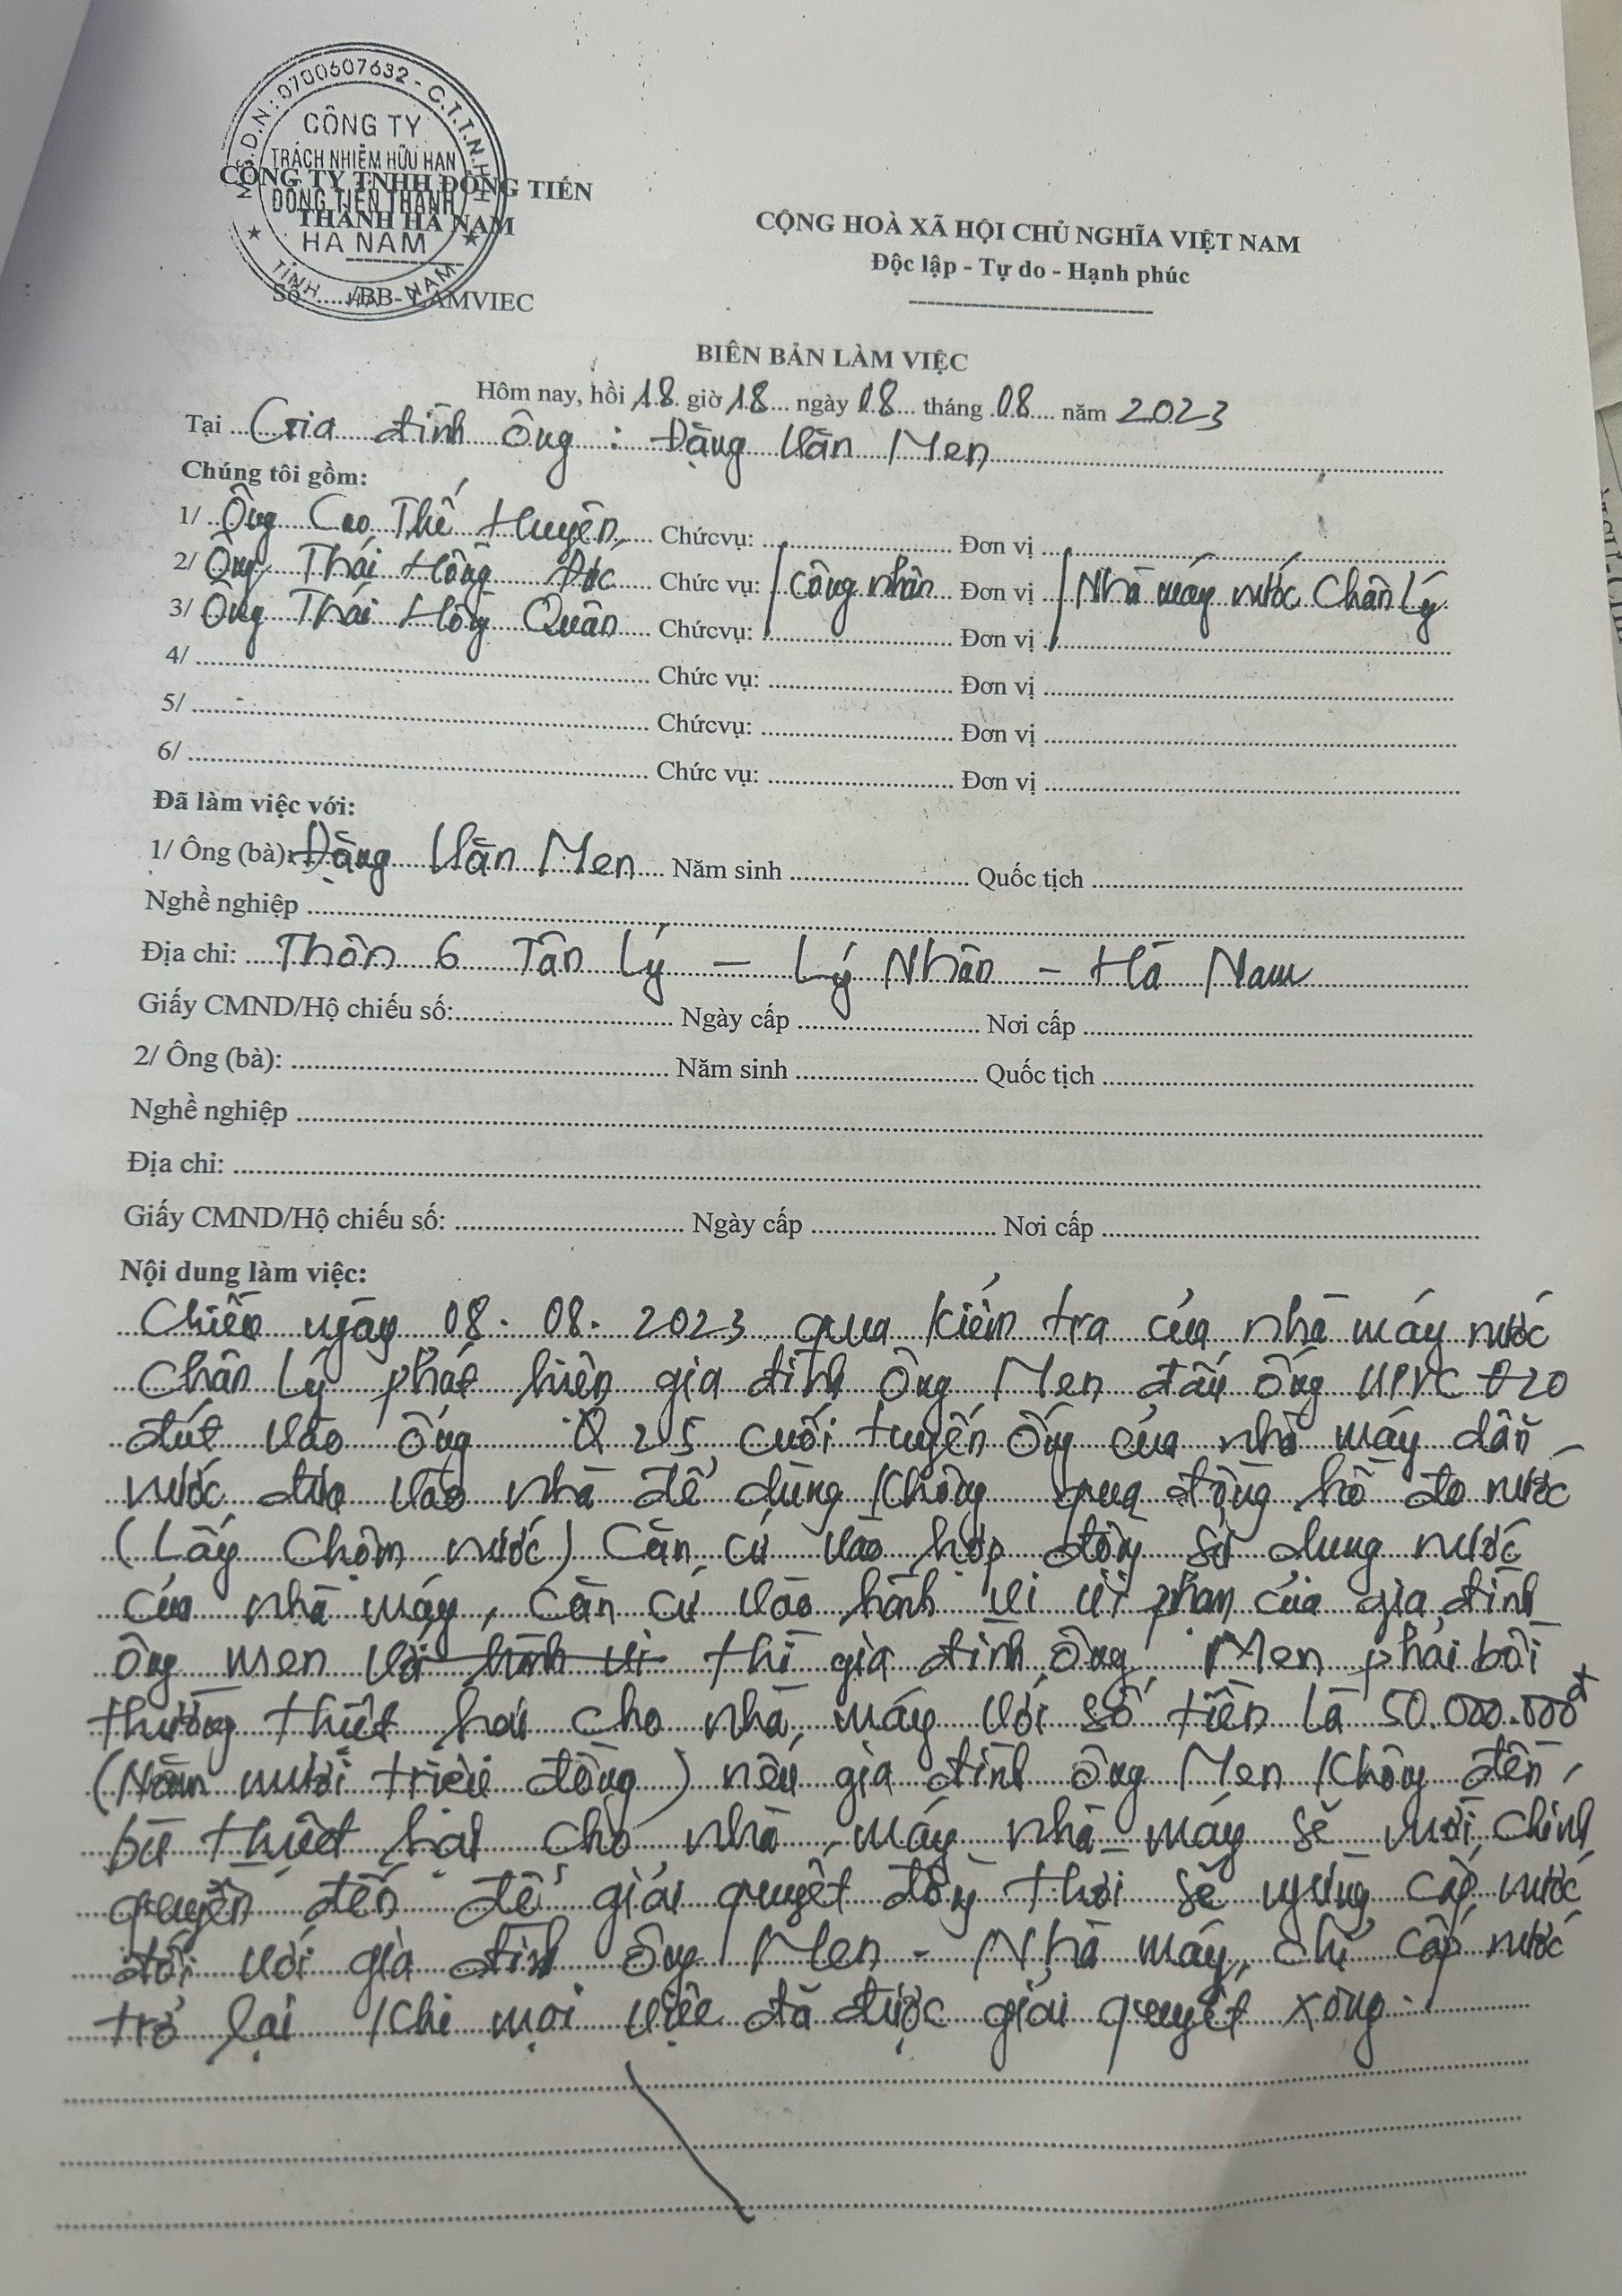 M.S.D.N: 0700607632 - C.T.T.N.H.H
CÔNG TY
TRÁCH NHIỆM HỮU HẠN
ĐỒNG TIẾN THÀNH
HÀ NAM
TỈNH HÀ NAM
CÔNG TY TNHH ĐỒNG TIẾN
THÀNH HÀ NAM
Số....../BB- LAMVIEC
CỘNG HOÀ XÃ HỘI CHỦ NGHĨA VIỆT NAM
Độc lập - Tự do - Hạnh phúc
BIÊN BẢN LÀM VIỆC
Hôm nay, hồi 18 giờ 18 ngày 08 tháng 08 năm 2023
Tại Gia đình ông : Đặng Văn Men
Chúng tôi gồm:
1/ Ông Cao Thế Huyên Chứcvụ: Đơn vị
2/ Ông Thái Hồng Đức Chức vụ: công nhân Đơn vị Nhà máy nước Chân Lý
3/ Ông Thái Hồng Quân Chứcvụ: Đơn vị
4/ Chức vụ: Đơn vị
5/ Chứcvụ: Đơn vị
6/ Chức vụ: Đơn vị
Đã làm việc với:
1/ Ông (bà): Đặng Văn Men Năm sinh Quốc tịch
Nghề nghiệp
Địa chỉ: Thôn 6 Tân Lý - Lý Nhân - Hà Nam
Giấy CMND/Hộ chiếu số: Ngày cấp Nơi cấp
2/ Ông (bà): Năm sinh Quốc tịch
Nghề nghiệp
Địa chỉ:
Giấy CMND/Hộ chiếu số: Ngày cấp Nơi cấp
Nội dung làm việc:
Chiều ngày 08. 08. 2023 qua kiểm tra của nhà máy nước
Chân Lý phát hiện gia đình Ông Men đấu ống UPVC Φ20
đút vào ống Φ 25 cuối tuyến ống của nhà máy dẫn
nước đưa vào nhà để dùng không qua đồng hồ đo nước
(Lấy chộm nước) Căn cứ vào hợp đồng sử dụng nước
của nhà máy, căn cứ vào hành vi vi phạm của gia đình
ông Men với hành vi thì gia đình ông Men phải bồi
thường thiệt hại cho nhà máy với số tiền là 50.000.000đ
(Năm mươi triệu đồng) nếu gia đình ông Men không đền
bù thiệt hại cho nhà máy nhà máy sẽ mời chính
quyền đến để giải quyết đồng thời sẽ ngừng cấp nước
đối với gia đình ông Men - Nhà máy chỉ cấp nước
trở lại khi mọi việc đã được giải quyết xong.